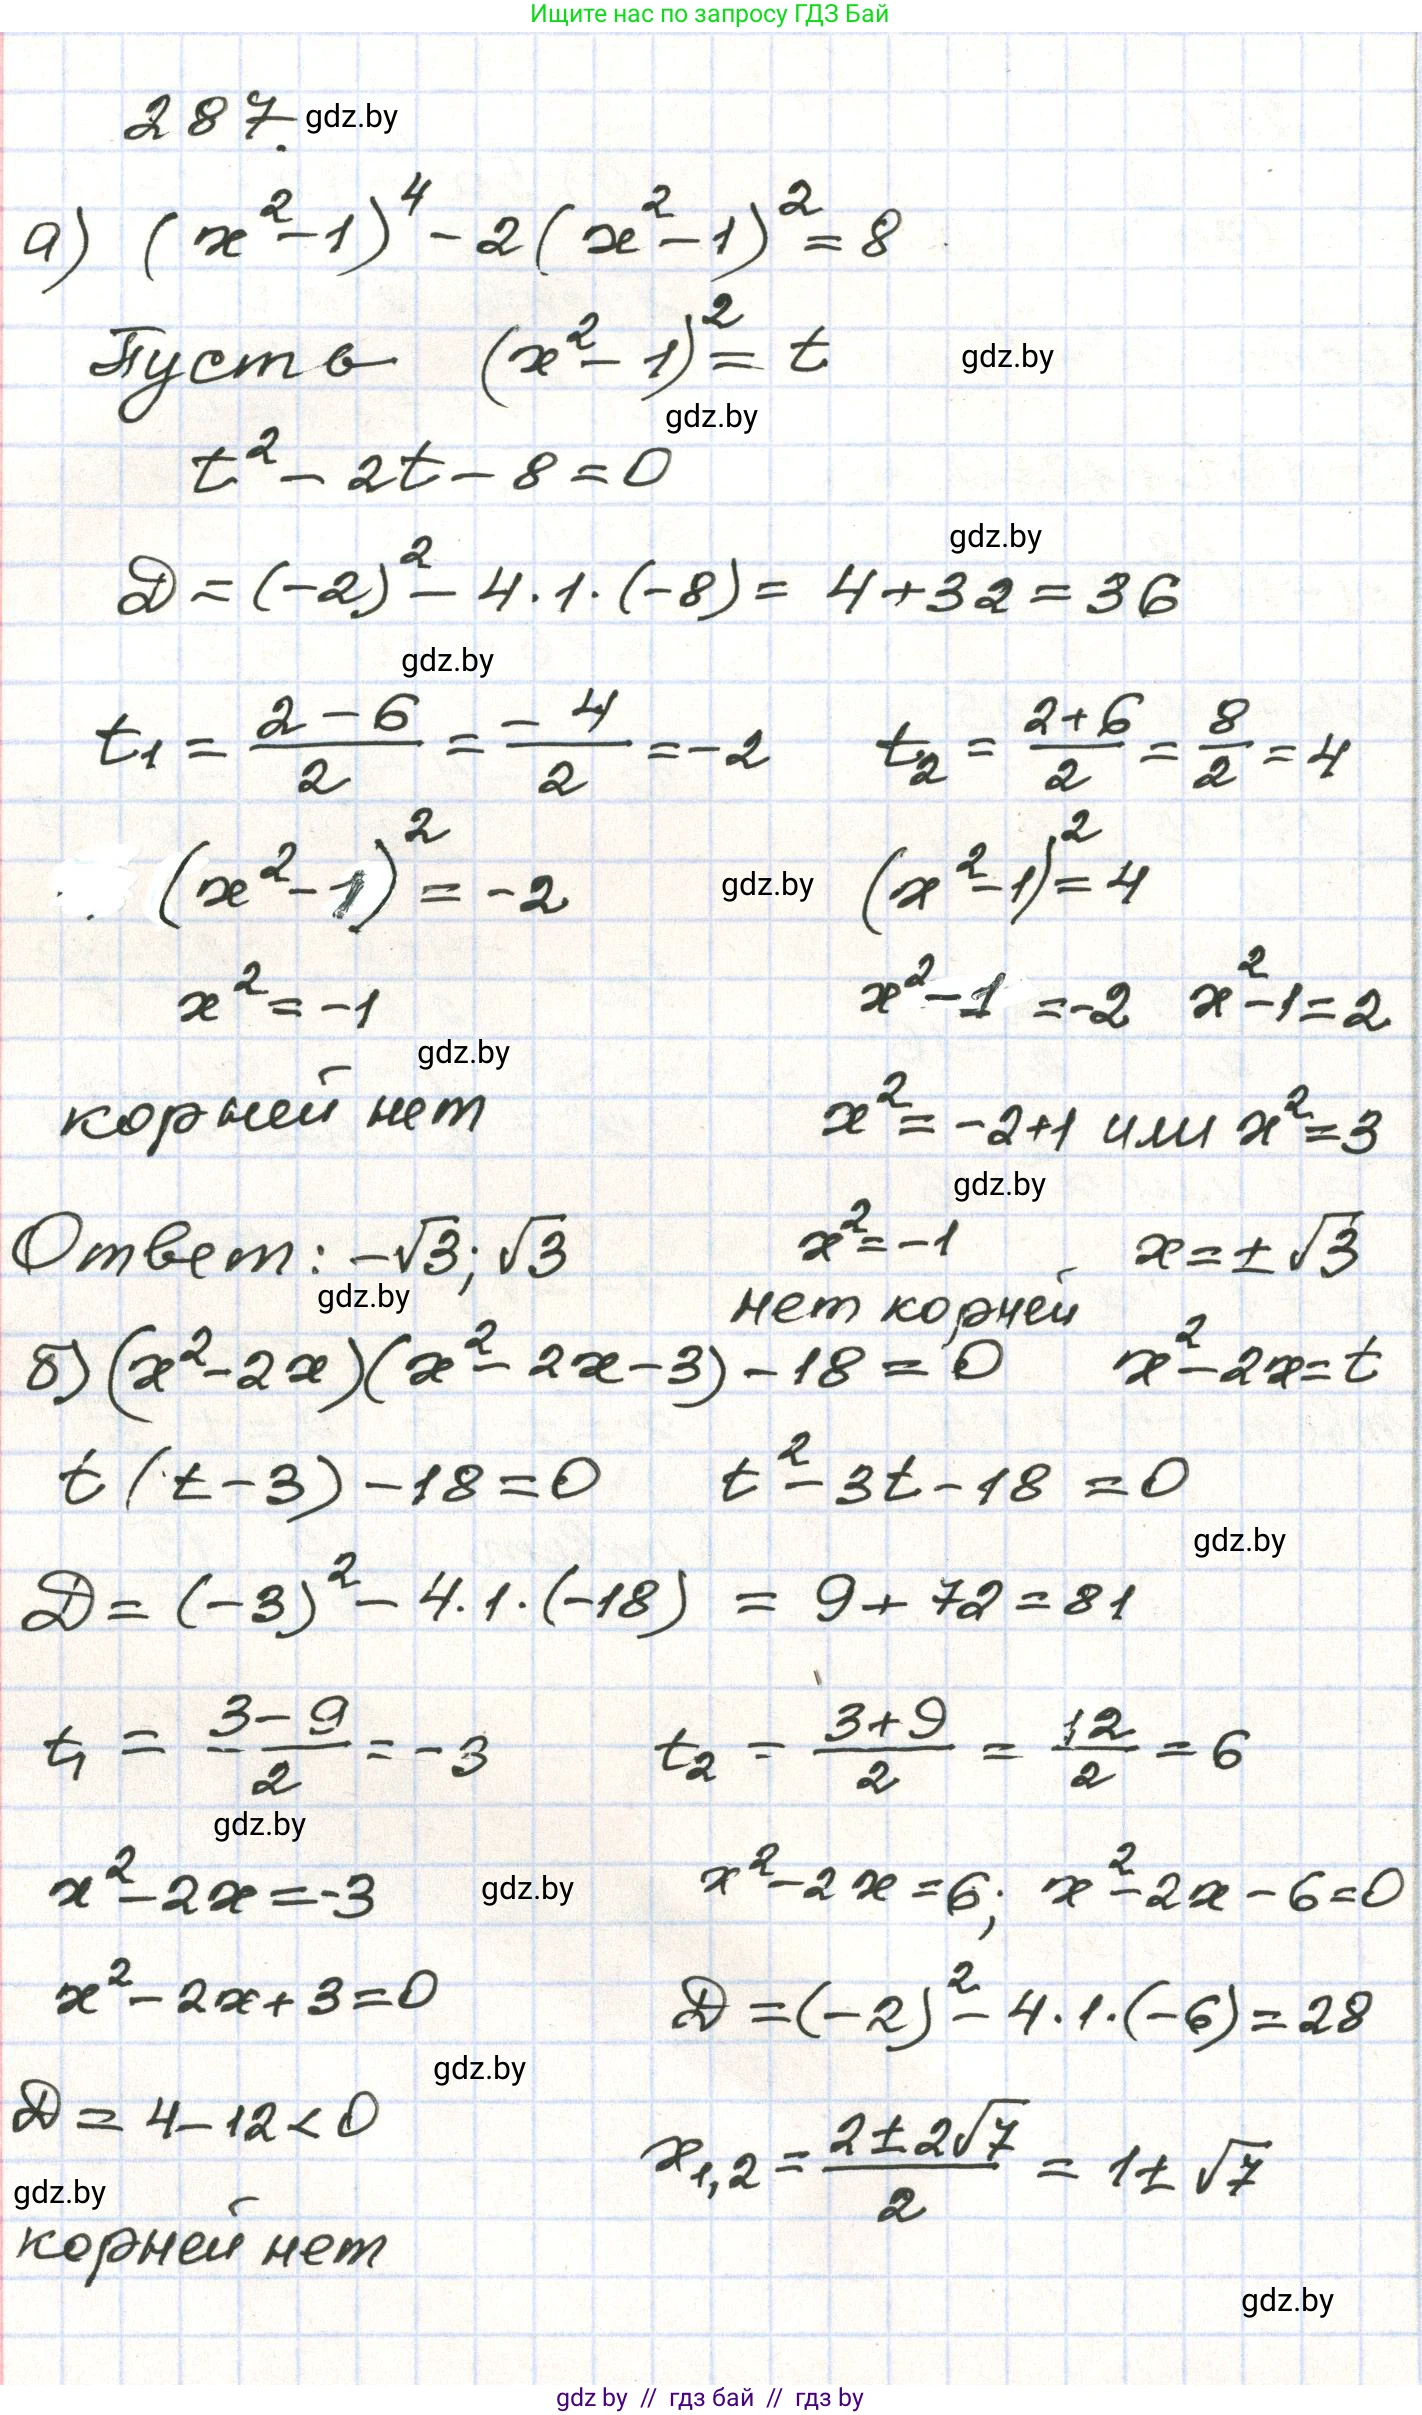 Ищите нас по запросу ГДЗ Бай
287. gdz.by
а) (x²-1)⁴-2(x²-1)²=8
Пусть (x²-1)²=t gdz.by
gdz.by
t²-2t-8=0
gdz.by
Д=(-2)²-4·1·(-8)= 4+32=36
gdz.by
t₁=(2-6)/2=-4/2=-2 t₂=(2+6)/2=8/2=4
(x²-1)²=-2 gdz.by (x²-1)²=4
x²=-1 x²-1=-2 x²-1=2
gdz.by
корней нет x²=-2+1 или x²=3
gdz.by
Ответ: -√3; √3 x²=-1 x=±√3
gdz.by нет корней
б) (x²-2x)(x²-2x-3)-18=0 x²-2x=t
t(t-3)-18=0 t²-3t-18=0
gdz.by
Д=(-3)²-4·1·(-18) = 9+72=81
t₁ = (3-9)/2=-3 t₂ = (3+9)/2 = 12/2 = 6
gdz.by
x²-2x=-3 gdz.by x²-2x=6; x²-2x-6=0
x²-2x+3=0 Д=(-2)²-4·1·(-6)=28
gdz.by
Д=4-12<0 x₁,₂=(2±2√7)/2 = 1±√7
gdz.by
корней нет
gdz.by
gdz by // гдз бай // гдз by